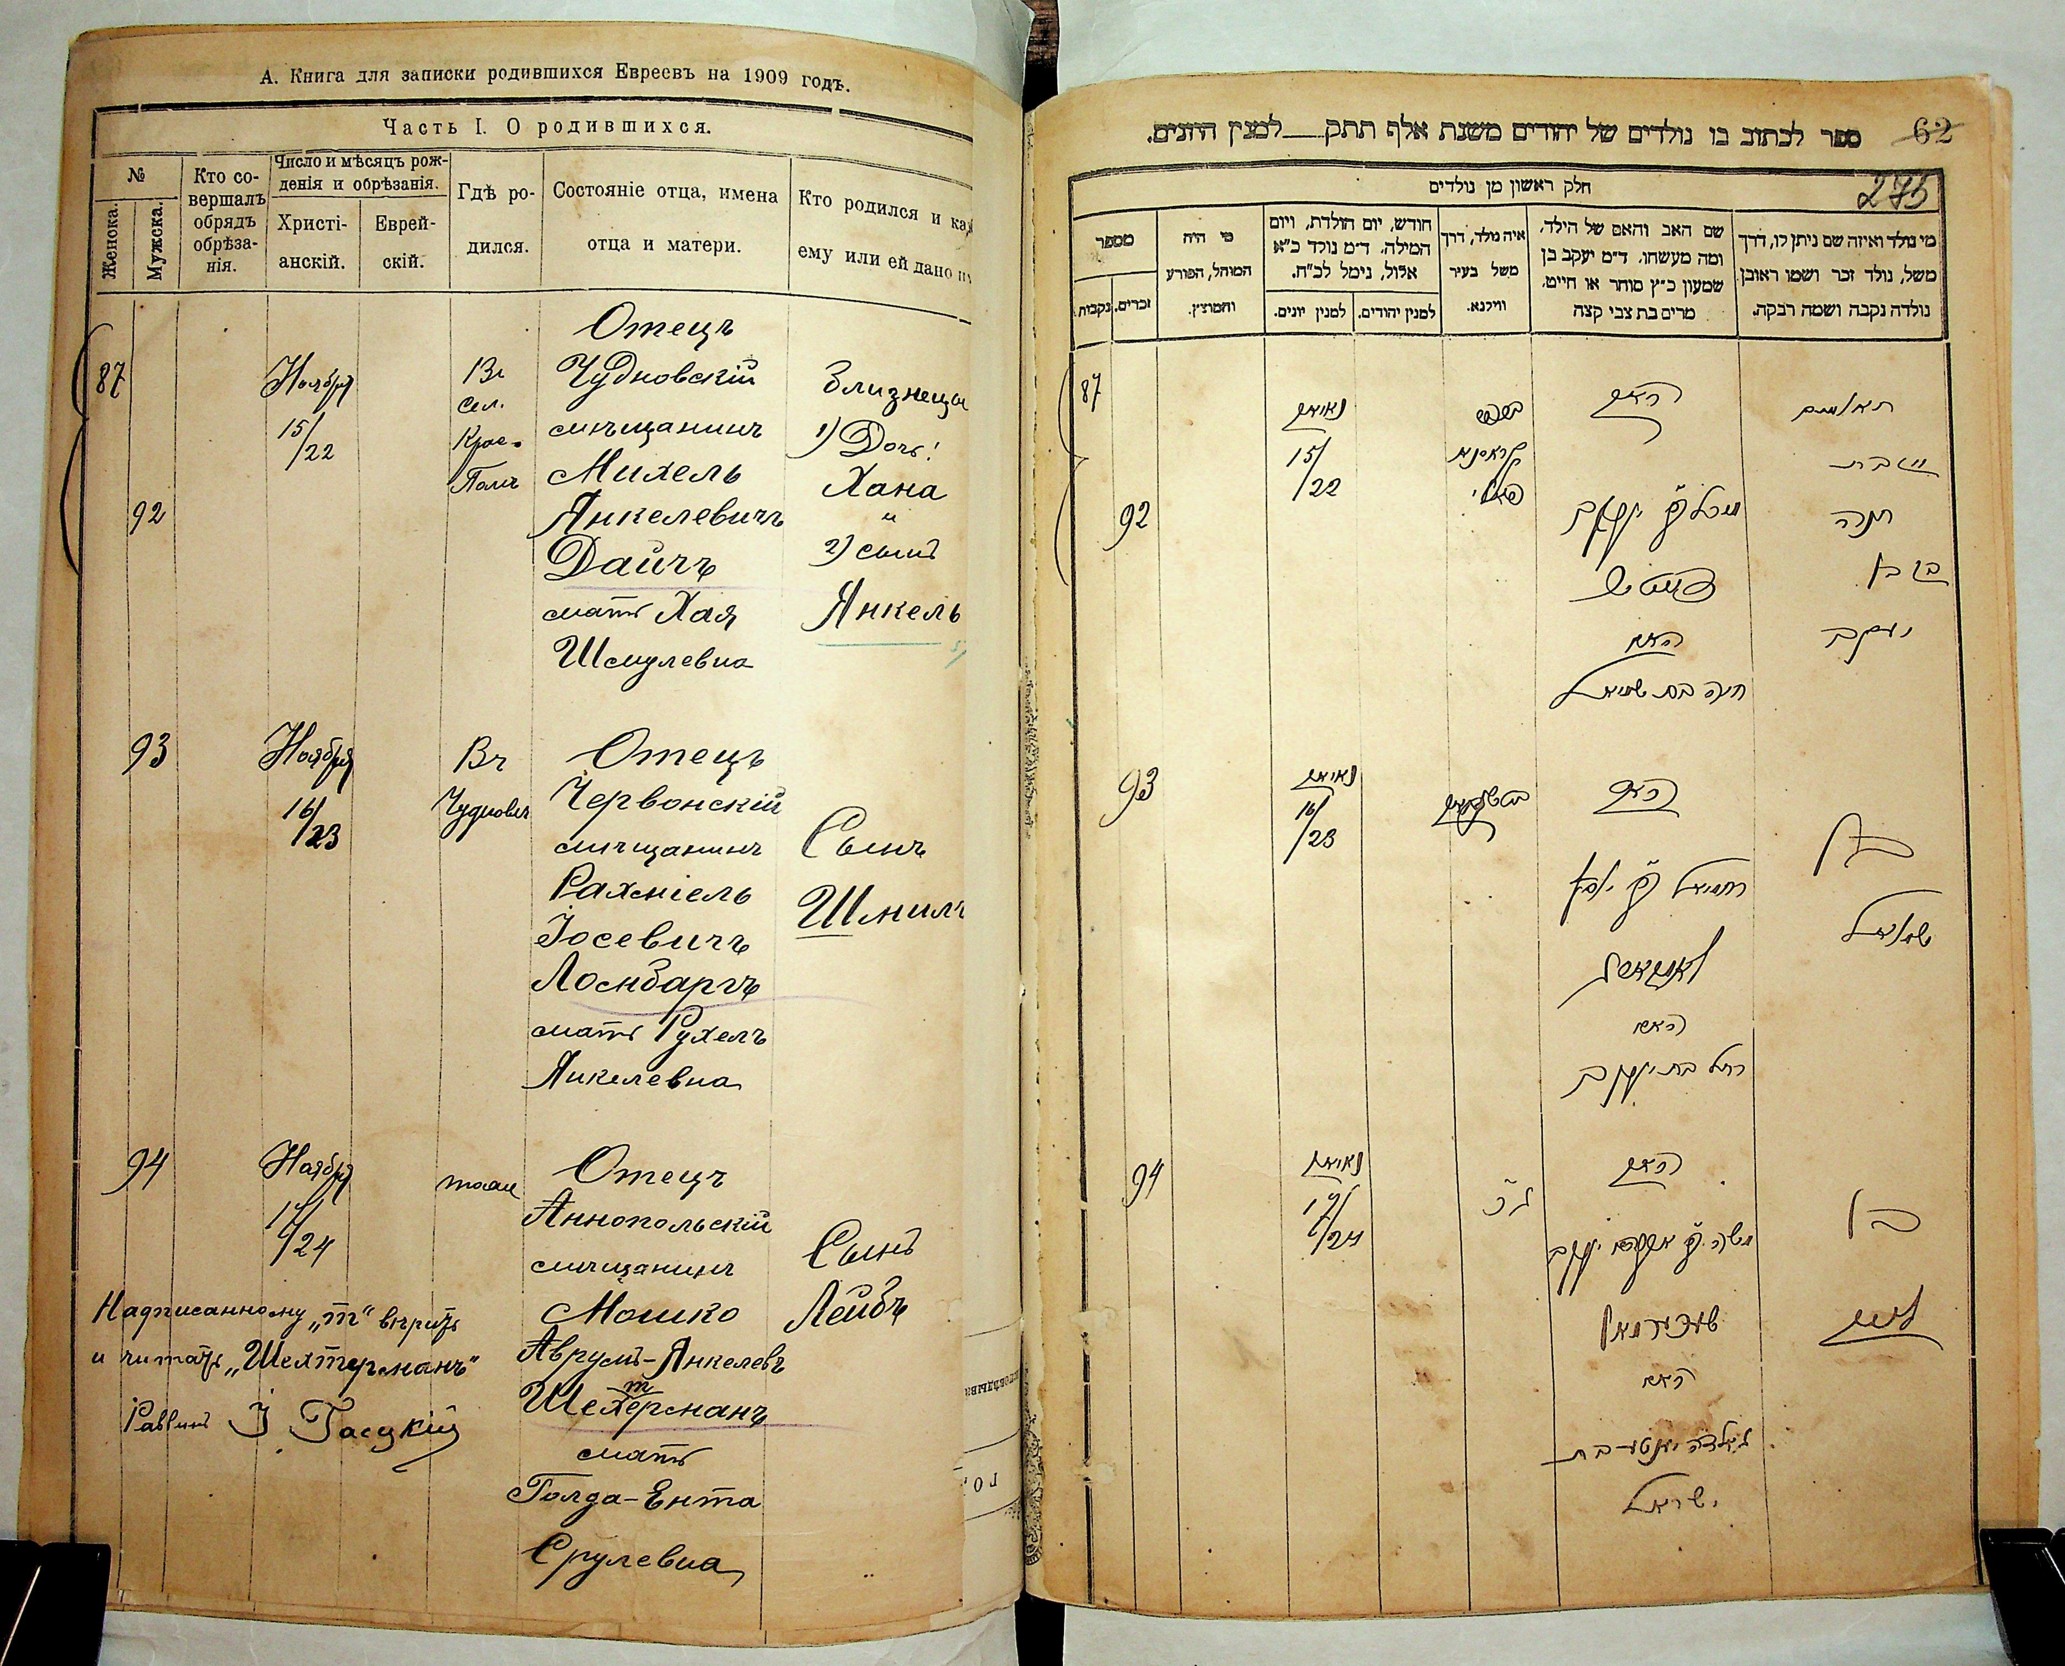 А. Книга для записки родившихся Евреевъ на 1909 годъ.
Часть I. О родившихся.
№
Женска.
Мужска.
Кто со-
вершалъ
обрядъ
обрѣза-
нія.
Число и мѣсяцъ рож-
денія и обрѣзанія.
Христі-
анскій.
Еврей-
скій.
Гдѣ ро-
дился.
Состояніе отца, имена
отца и матери.
Кто родился и как
ему или ей дано
87
92
Ноября
15/22
Въ
сел.
Крас-
Полѣ
Отецъ
Чудновскій
мѣщанинъ
Михель
Янкелевичъ
Дайчъ
мать Хая
Шмулевна
Близнецы
1) Дочь!
Хана
и
2) сынъ
Янкель
93
Ноября
16/23
Въ
Чудновѣ
Отецъ
Червонскій
мѣщанинъ
Рахміель
Іосевичъ
Ломбаргъ
мать Рухель
Янкелевна
Сынъ
Шмилъ
94
Ноября
17/24
тоже
Отецъ
Аннопольскій
мѣщанинъ
Мошко
Аврумъ-Янкелевъ
т
Шехерманъ
мать
Голда-Ента
Срулевна
Сынъ
Лейбъ
Надписанному „т“ вѣрить
и читать „Шехтерманъ“
Раввинъ
62
ספר לכתוב בו נולדים של יהודים משנת אלף תתק למנין היונים.
275
חלק ראשון מן נולדים
מי נולד ואיזה שם ניתן לו, דרך
משל, נולד זכר ושמו ראובן
נולדה נקבה ושמה רבקה.
שם האב והאם של הילד,
ומה מעשהו. ד״מ יעקב בן
שמעון כ״ץ סוחר או חייט,
מרים בת צבי קצה
איה נולד, דרך
משל בעיר
ווילנא.
חודש, יום הולדת, ויום
המילה. ד״מ נולד כ״א
אלול, נימל לכ״ח.
למנין יהודים.
למנין יונים.
מי היה
המוהל, הפורע
והמוצץ.
מספר
זכרים.
נקבות
87
92
נאיאב
15/22
האב
מיכל ב״ר יעקב
דייטש
האם
חיה בת שמואל
תאומים
חנה
יעקב
93
נאיאב
16/23
האב
רחמיאל ב״ר יוסף
האם
רחל בת יעקב
בן
שמואל
94
נאיאב
17/24
האב
משה ב״ר אברהם יעקב
שעכטרמאן
האם
גאלדה יענטע בת
ישראל
בן
ליב